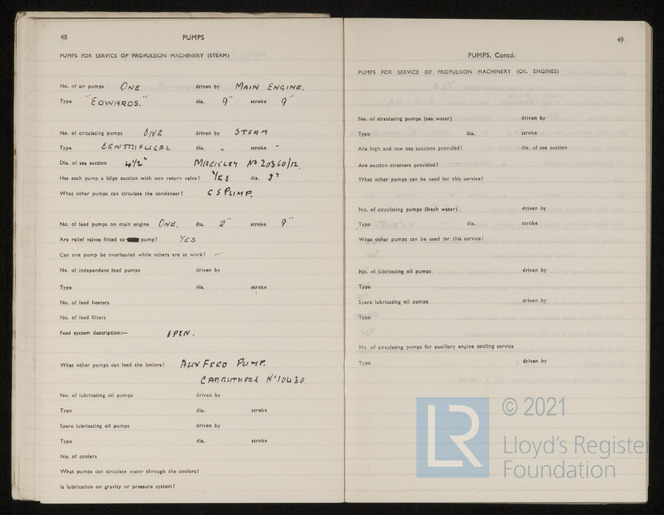 48
PUMPS
PUMPS FOR SERVICE OF PROPULSION MACHINERY (STEAM)
No. of air pumps ONE driven by MAIN ENGINE.
Type "EDWARDS." dia. 9" stroke 9"
No. of circulating pumps ONE driven by STEAM
Type CENTRIFUGAL dia. " stroke "
Dia. of sea suction 4½" Nº 20360/12.
Has each pump a bilge suction with non return valve? YES dia. 3"
What other pumps can circulate the condenser? G S PUMP.
No. of feed pumps on main engine ONE. dia. 2" stroke 9"
Are relief valves fitted to pump? YES
Can one pump be overhauled while others are at work? –
No. of independent feed pumps driven by
Type dia. stroke
No. of feed heaters
No. of feed filters
Feed system description:— OPEN.
What other pumps can feed the boilers? AUX FEED PUMP.
CARRUTHERS Nº 10430
No. of lubricating oil pumps driven by
Type dia. stroke
Spare lubricating oil pumps driven by
Type dia. stroke
No. of coolers
What pumps can circulate water through the coolers?
Is lubrication on gravity or pressure system?
49
PUMPS, Contd.
PUMPS FOR SERVICE OF PROPULSION MACHINERY (OIL ENGINES)
No. of circulating pumps (sea water) driven by
Type dia. stroke
Are high and low sea suctions provided? dia. of sea suction
Are suction strainers provided?
What other pumps can be used for this service?
No. of circulating pumps (fresh water) driven by
Type dia. stroke
What other pumps can be used for this service?
No. of lubricating oil pumps driven by
Type
Spare lubricating oil pumps driven by
Type
No. of circulating pumps for auxiliary engine cooling service
Type driven by
LR
© 2021
Lloyd's Register
Foundation